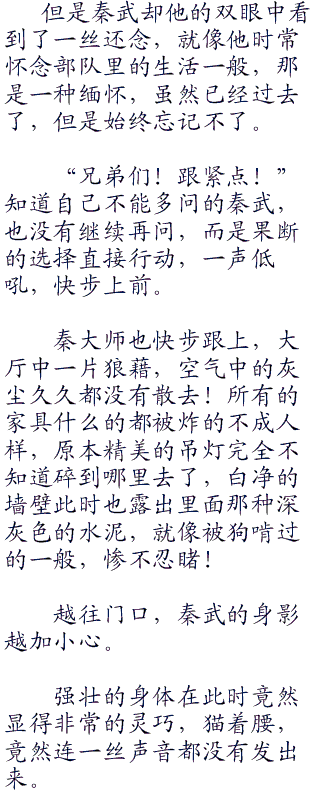 但是秦武却他的双眼中看
到了一丝还念，就像他时常
怀念部队里的生活一般，那
是一种缅怀，虽然已经过去
了，但是始终忘记不了。
“兄弟们！跟紧点！”
知道自己不能多问的秦武，
也没有继续再问，而是果断
的选择直接行动，一声低
吼，快步上前。
秦大师也快步跟上，大
厅中一片狼藉，空气中的灰
尘久久都没有散去！所有的
家具什么的都被炸的不成人
样，原本精美的吊灯完全不
知道碎到哪里去了，白净的
墙壁此时也露出里面那种深
灰色的水泥，就像被狗啃过
的一般，惨不忍睹！
越往门口，秦武的身影
越加小心。
强壮的身体在此时竟然
显得非常的灵巧，猫着腰，
竟然连一丝声音都没有发出
来。